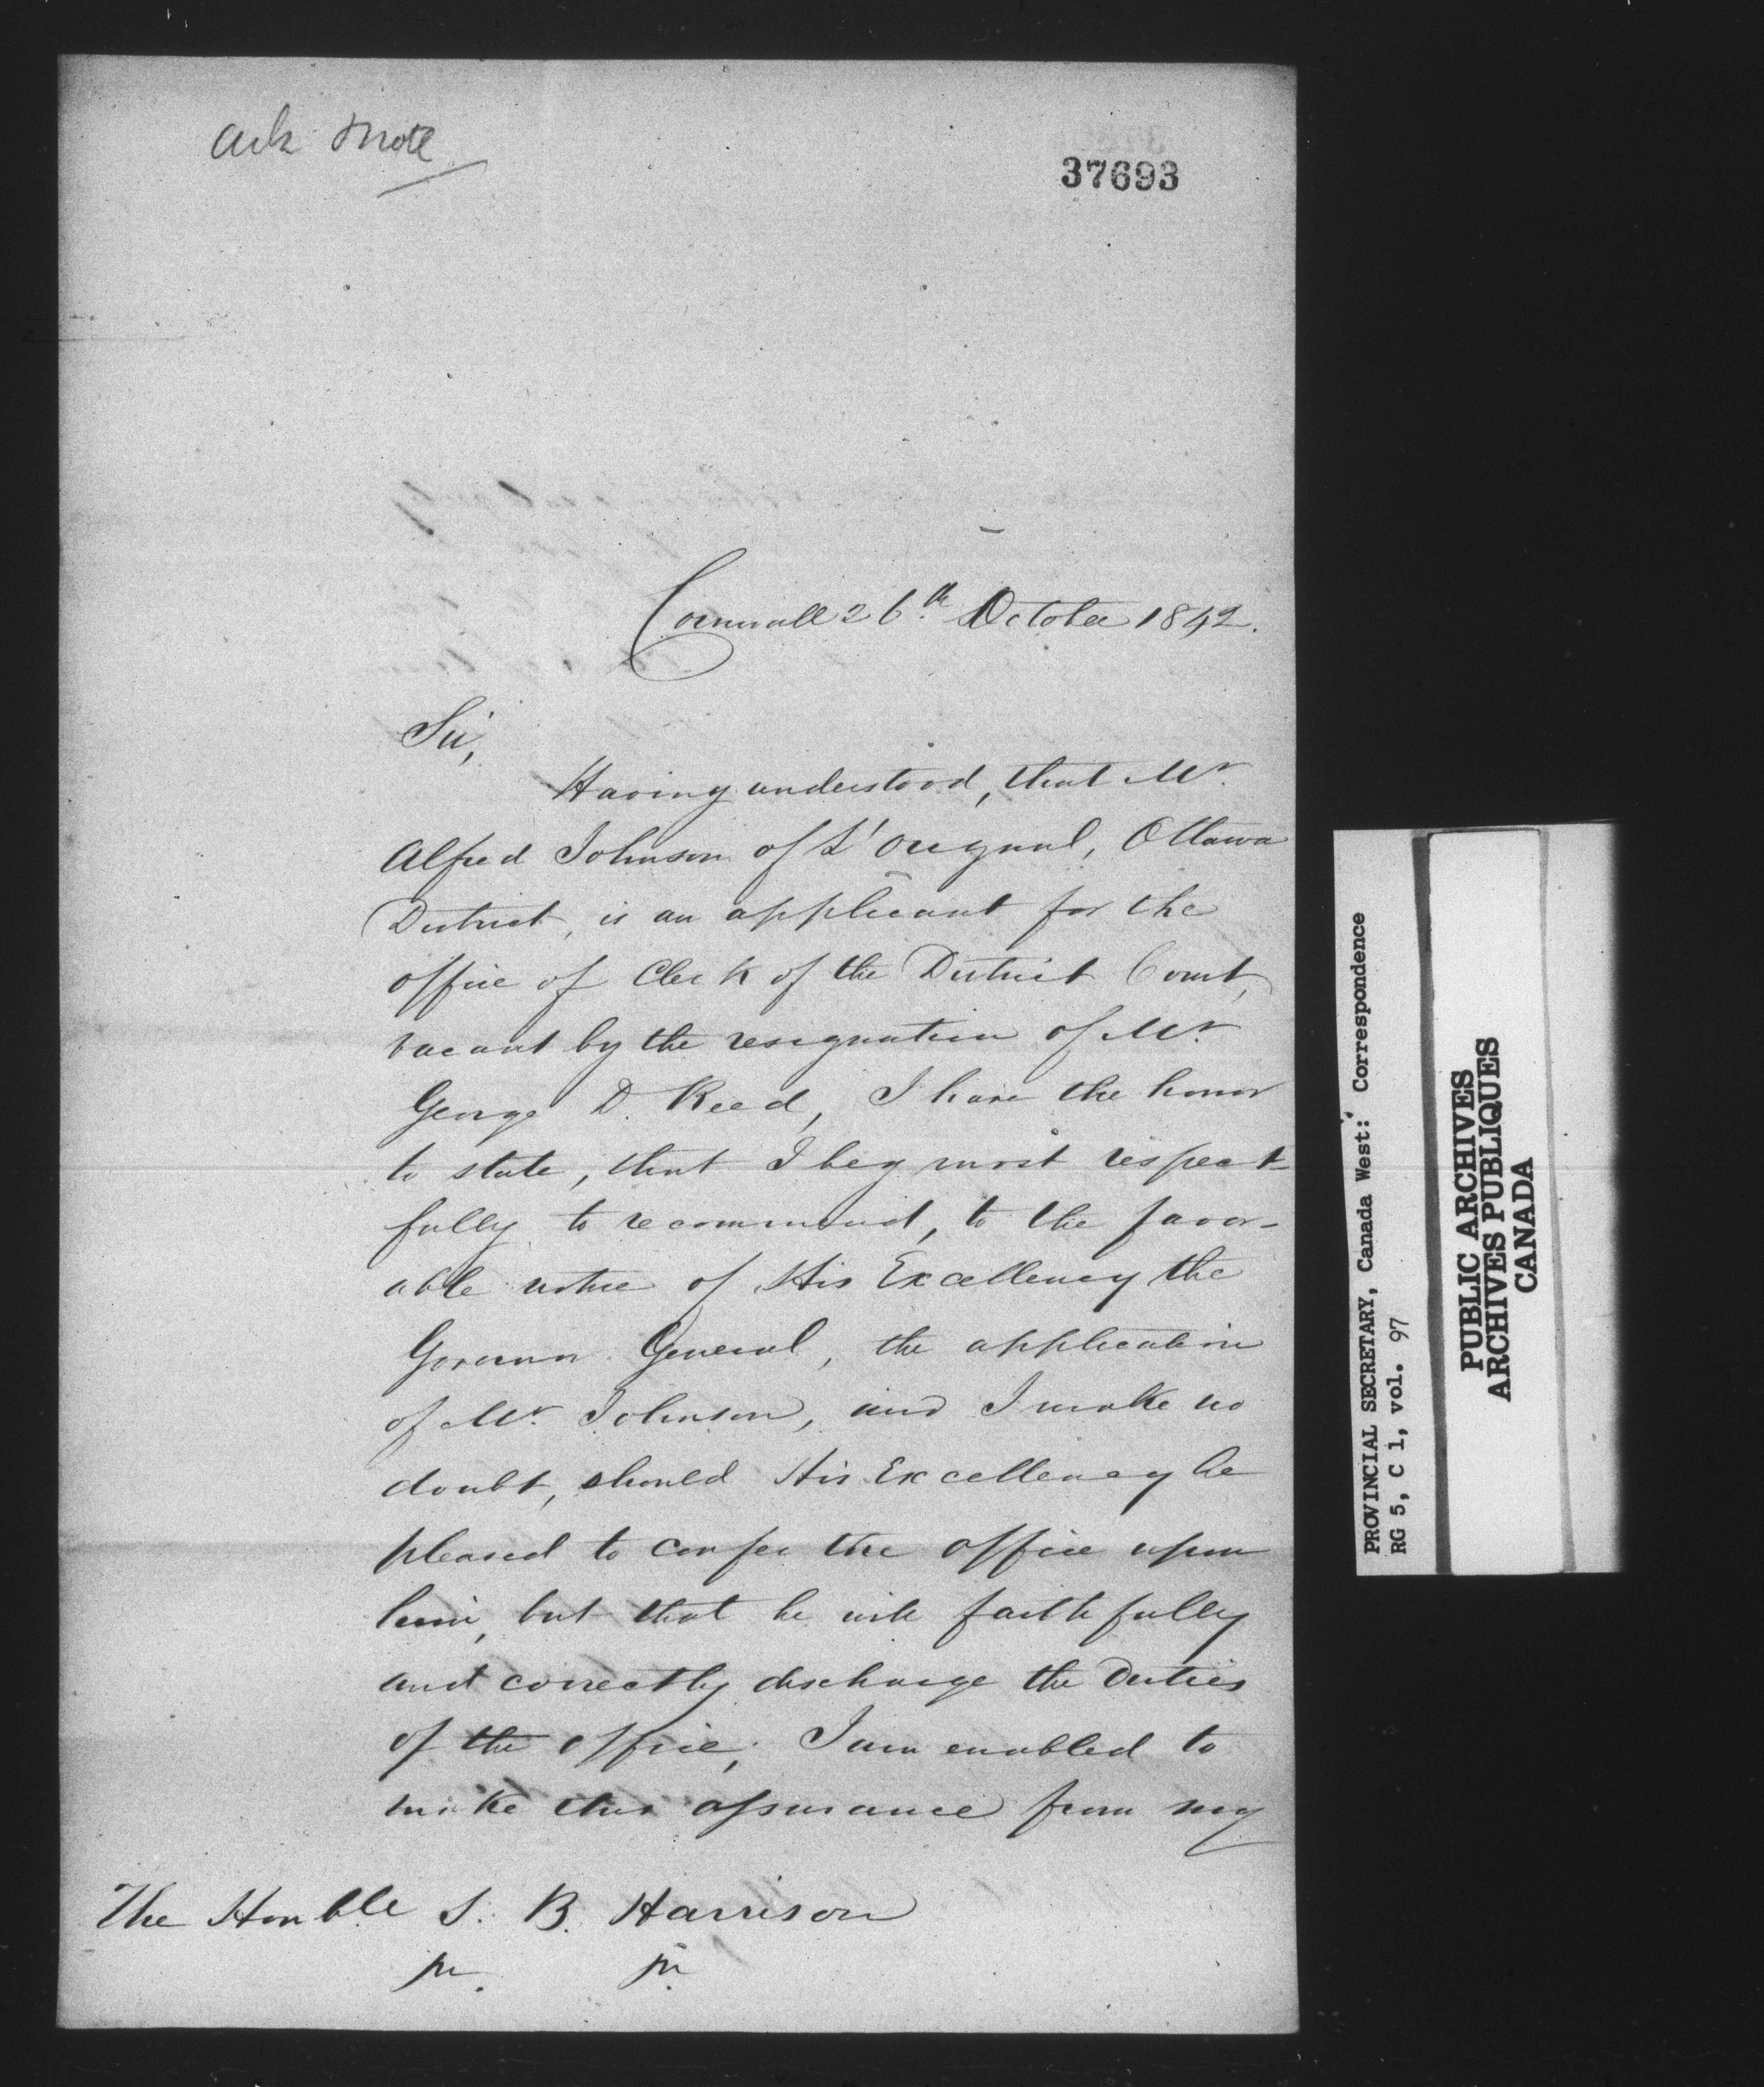 Ack & note
37693
Cornwall 26th October 1842.
Sir,
Having understood, that Mr.
Alfred Johnson of L'Orignal, Ottawa
District, is an applicant for the
office of Clerk of the District Court,
vacant by the resignation of Mr.
George D. Reed, I have the honor
to state, that I beg most respect-
fully to recommend, to the favor-
able notice of His Excellency the
Governor General, the application
of Mr. Johnson, and I make no
doubt, should His Excellency be
pleased to confer the office upon
him, but that he will faithfully
and correctly discharge the Duties
of the office; I am enabled to
make this assurance from my
The Honble S. B. Harrison
PROVINCIAL SECRETARY, Canada West: Correspondence
RG 5, C 1, vol. 97
PUBLIC ARCHIVES
ARCHIVES PUBLIQUES
CANADA